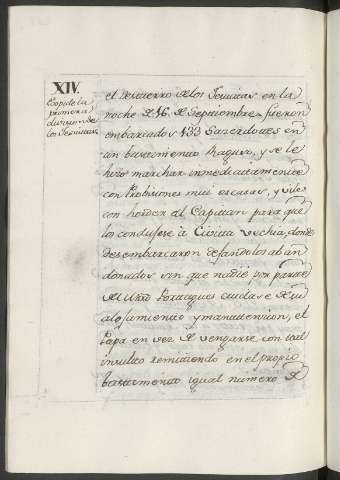 XIV.
Copi de la
primera
division de
los Jesuitas
el destierro de los Jesuitas en la
noche de 16 de Septiembre fueron
embarcados 133 Sacerdotes en
un bastimento Raguso, y se le
hizo marchar inmediatamente
con Probisiones mui escasas, y viles
con horden al Capitan para que
los condujese à Civita Vechia, donde
desembarcaron dejandolos aban
donados sin que nadie por parte
Portugues cuidase de su
alojamiento y manutencion, el
Papa en vez de vengarse con tal
insulto remitiendo en el propio
bastimento igual numero de